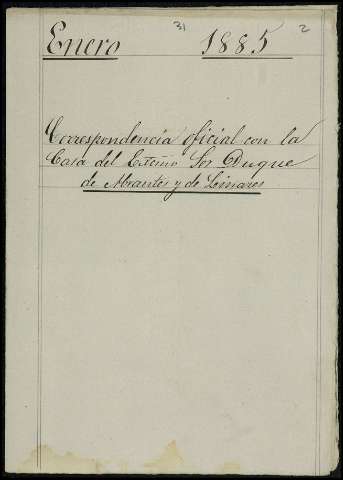 31 2
Enero 1885
Correspondencia oficial con la
Casa del Excmo Sor Duque
de Abrantes y de Linares